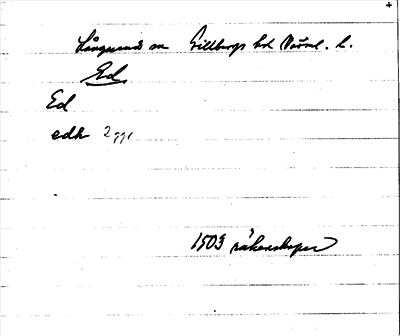 Långserud sn Gillbergs hd Värml. l.
Ed
Ed
edh 2 ggr
1503 räkenskaper